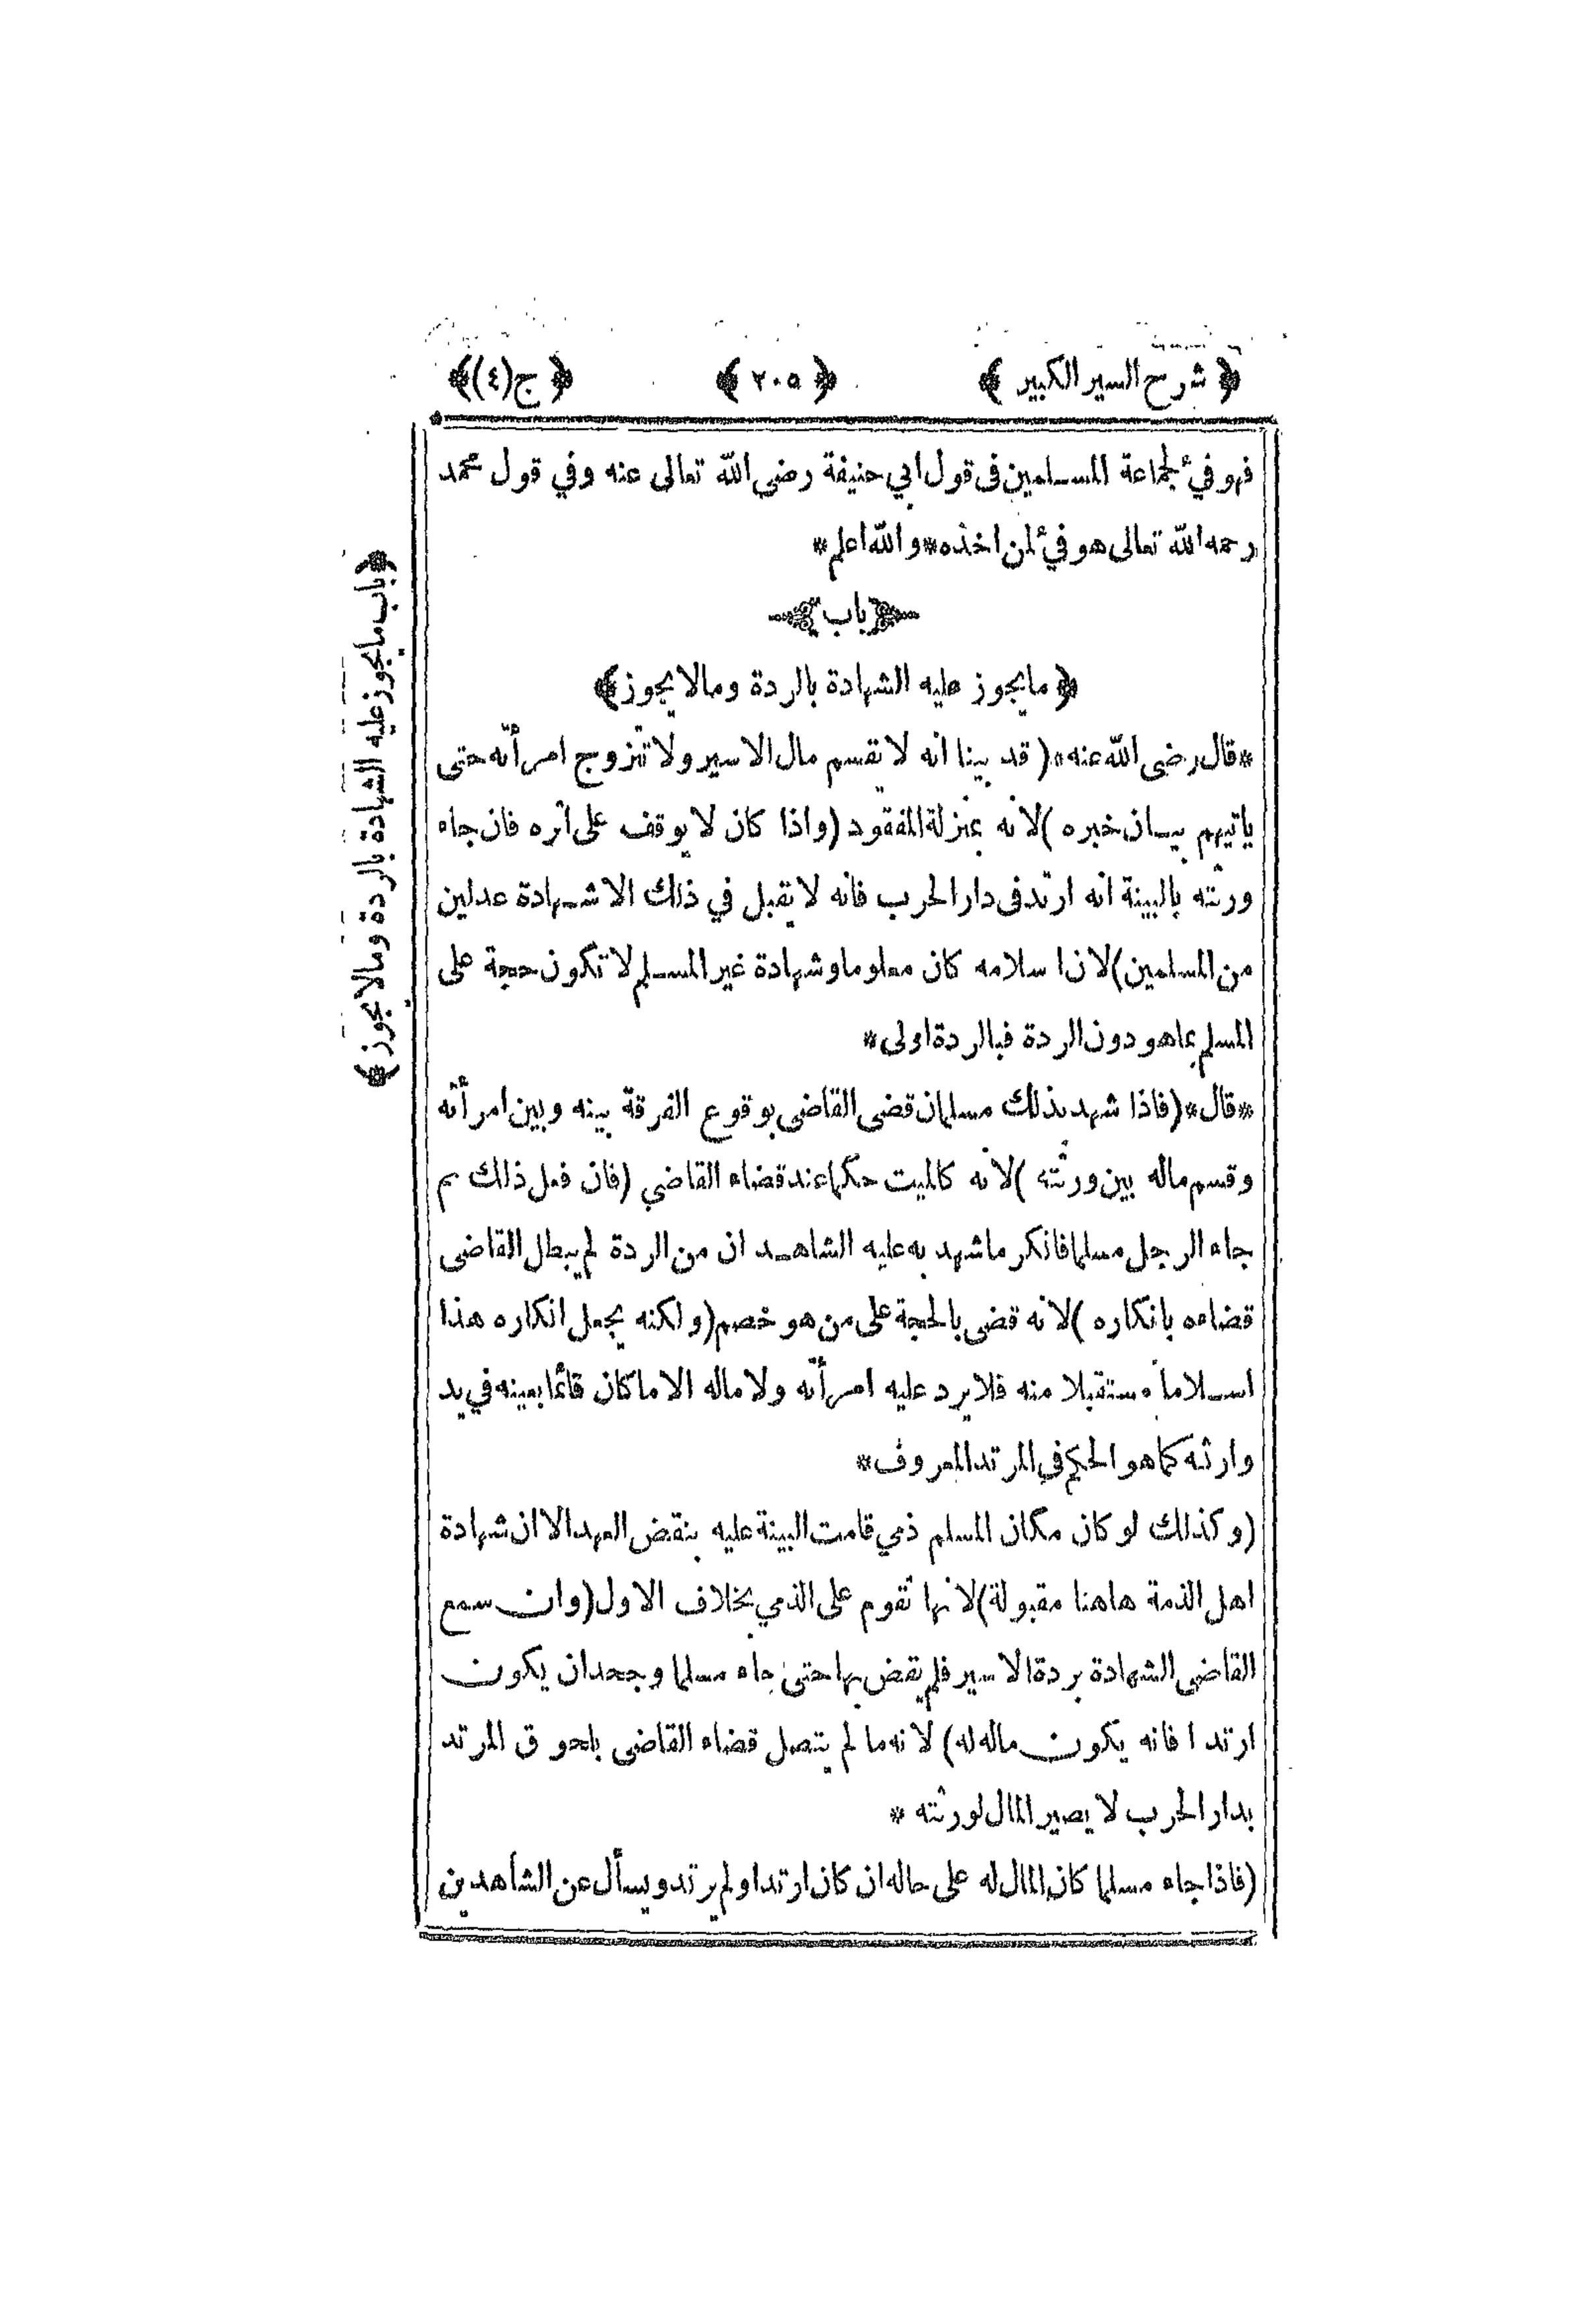 ﴿ شرح السير الكبير ﴾ ﴿ ٢٠٥ ﴾ ﴿ ج (٤) ﴾
فهو فيء لجماعة المسلمين فى قول ابي حنيفة رضى الله تعالى عنه وفي قول محمد
رحمه الله تعالى هو فيء لمن اخذه * والله اعلم *
﴿ باب ﴾
﴿ مايجوز عليه الشهادة بالردة ومالا يجوز ﴾
* قال رضى الله عنه * ( قد بينا انه لا يقسم مال الاسير ولا تتزوج امرأته حتى
ياتيهم بيان خبره ) لانه بمنزلة المفقود ( واذا كان لا يوقف على اثره فان جاء
ورثته بالبينة انه ارتد فى دار الحرب فانه لا يقبل في ذلك الا شهادة عدلين
من المسلمين ) لان اسلامه كان معلوما وشهادة غير المسلم لا تكون حجة على
المسلم بماهو دون الردة فبالردة اولى *
* قال * ( فاذا شهد بذلك مسلمان قضى القاضى بوقوع الفرقة بينه وبين امرأته
وقسم ماله بين ورثته ) لانه كالميت حكما عند قضاء القاضي ( فان فعل ذلك ثم
جاء الرجل مسلما فانكر ما شهد به عليه الشاهد ان من الردة لم يبطل القاضى
قضاءه بانكاره ) لانه قضى بالحجة على من هو خصم ( ولكنه يجعل انكاره هذا
اسلاما مستقبلا منه فلا يرد عليه امرأته ولا ماله الا ما كان قائما بعينه في يد
وارثه كما هو الحكم في المرتد المعروف *
( وكذلك لو كان مكان المسلم ذمي قامت البينة عليه بنقض العهد الا ان شهادة
اهل الذمة هاهنا مقبولة ) لانها تقوم على الذمي بخلاف الاول ( وان سمع
القاضى الشهادة بردة الاسير فلم يقض بها حتى جاء مسلما وجحد ان يكون
ارتد ا فانه يكون ماله له ) لانه ما لم يتصل قضاء القاضى بلحوق المرتد
بدار الحرب لا يصير المال لورثته *
( فاذا جاء مسلما كان المال له على حاله ان كان ارتد او لم يرتد ويسأل عن الشاهدين
﴿ باب مايجوز عليه الشهادة بالردة ومالا يجوز ﴾